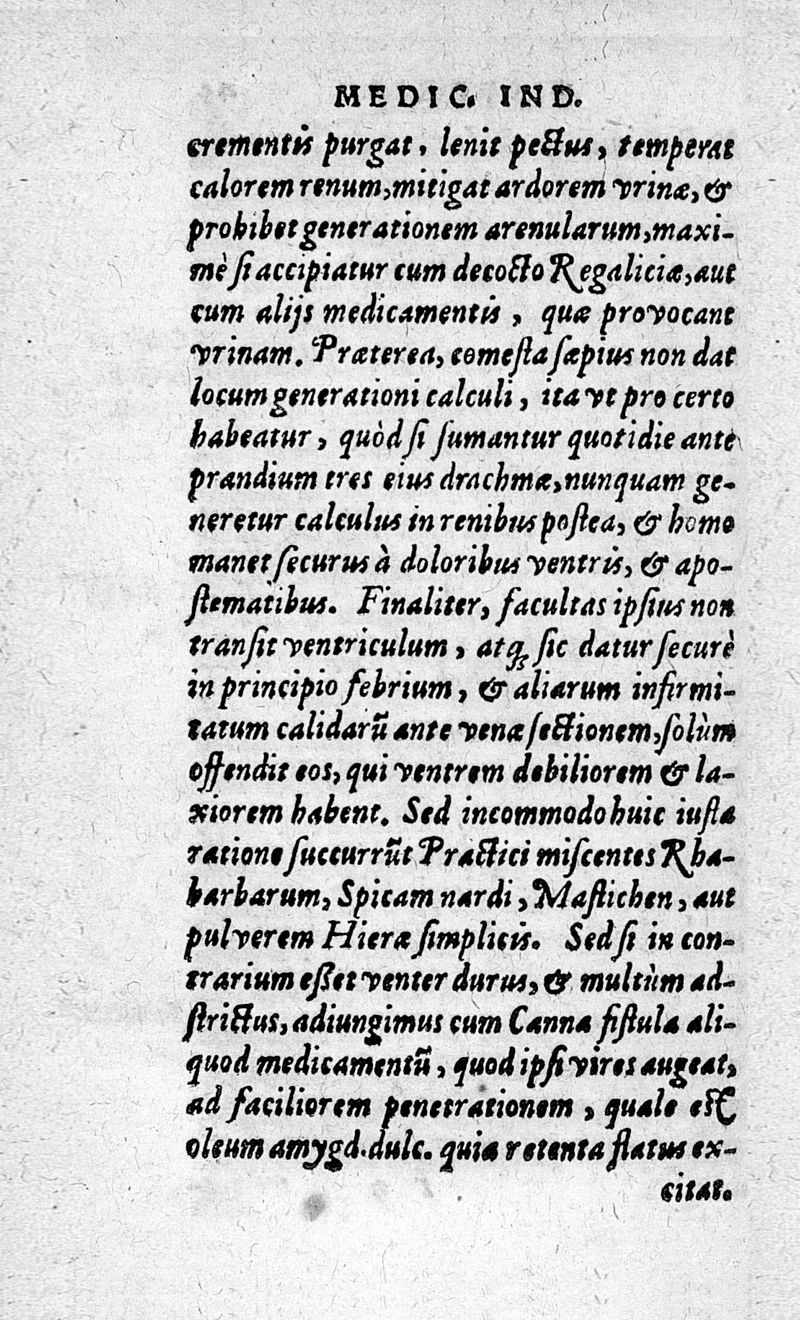 MEDIC. IND.
crementis purgat, lenit pectus, temperat
calorem renum, mitigat ardorem vrinæ, &
prohibet generationem arenularum, maxi-
mè ſi accipiatur cum decocto Regaliciæ, aut
cum alijs medicamentis, quæ provocant
vrinam. Præterea, comeſta ſæpius non dat
locum generationi calculi, ita vt pro certo
habeatur, quòd ſi ſumantur quotidie ante
prandium tres eius drachmæ, nunquam ge-
neretur calculus in renibus poſtea, & homo
manet ſecurus à doloribus ventris, & apo-
ſtematibus. Finaliter, facultas ipſius non
tranſit ventriculum, atq; ſic datur ſecurè
in principio febrium, & aliarum infirmi-
tatum calidarũ ante venæ ſectionem, ſolùm
offendit eos, qui ventrem debiliorem & la-
xiorem habent. Sed incommodo huic iuſta
ratione ſuccurrũt Practici miſcentes Rha-
barbarum, Spicam nardi, Maſtichen, aut
pulverem Hieræ ſimplicis. Sed ſi in con-
trarium eſſet venter durus, & multùm ad-
ſtrictus, adiungimus cum Canna fiſtula ali-
quod medicamentũ, quod ipſi vires augeat,
ad faciliorem penetrationem, quale eſt
oleum amygd. dulc. quia retenta flatus ex-
citat.